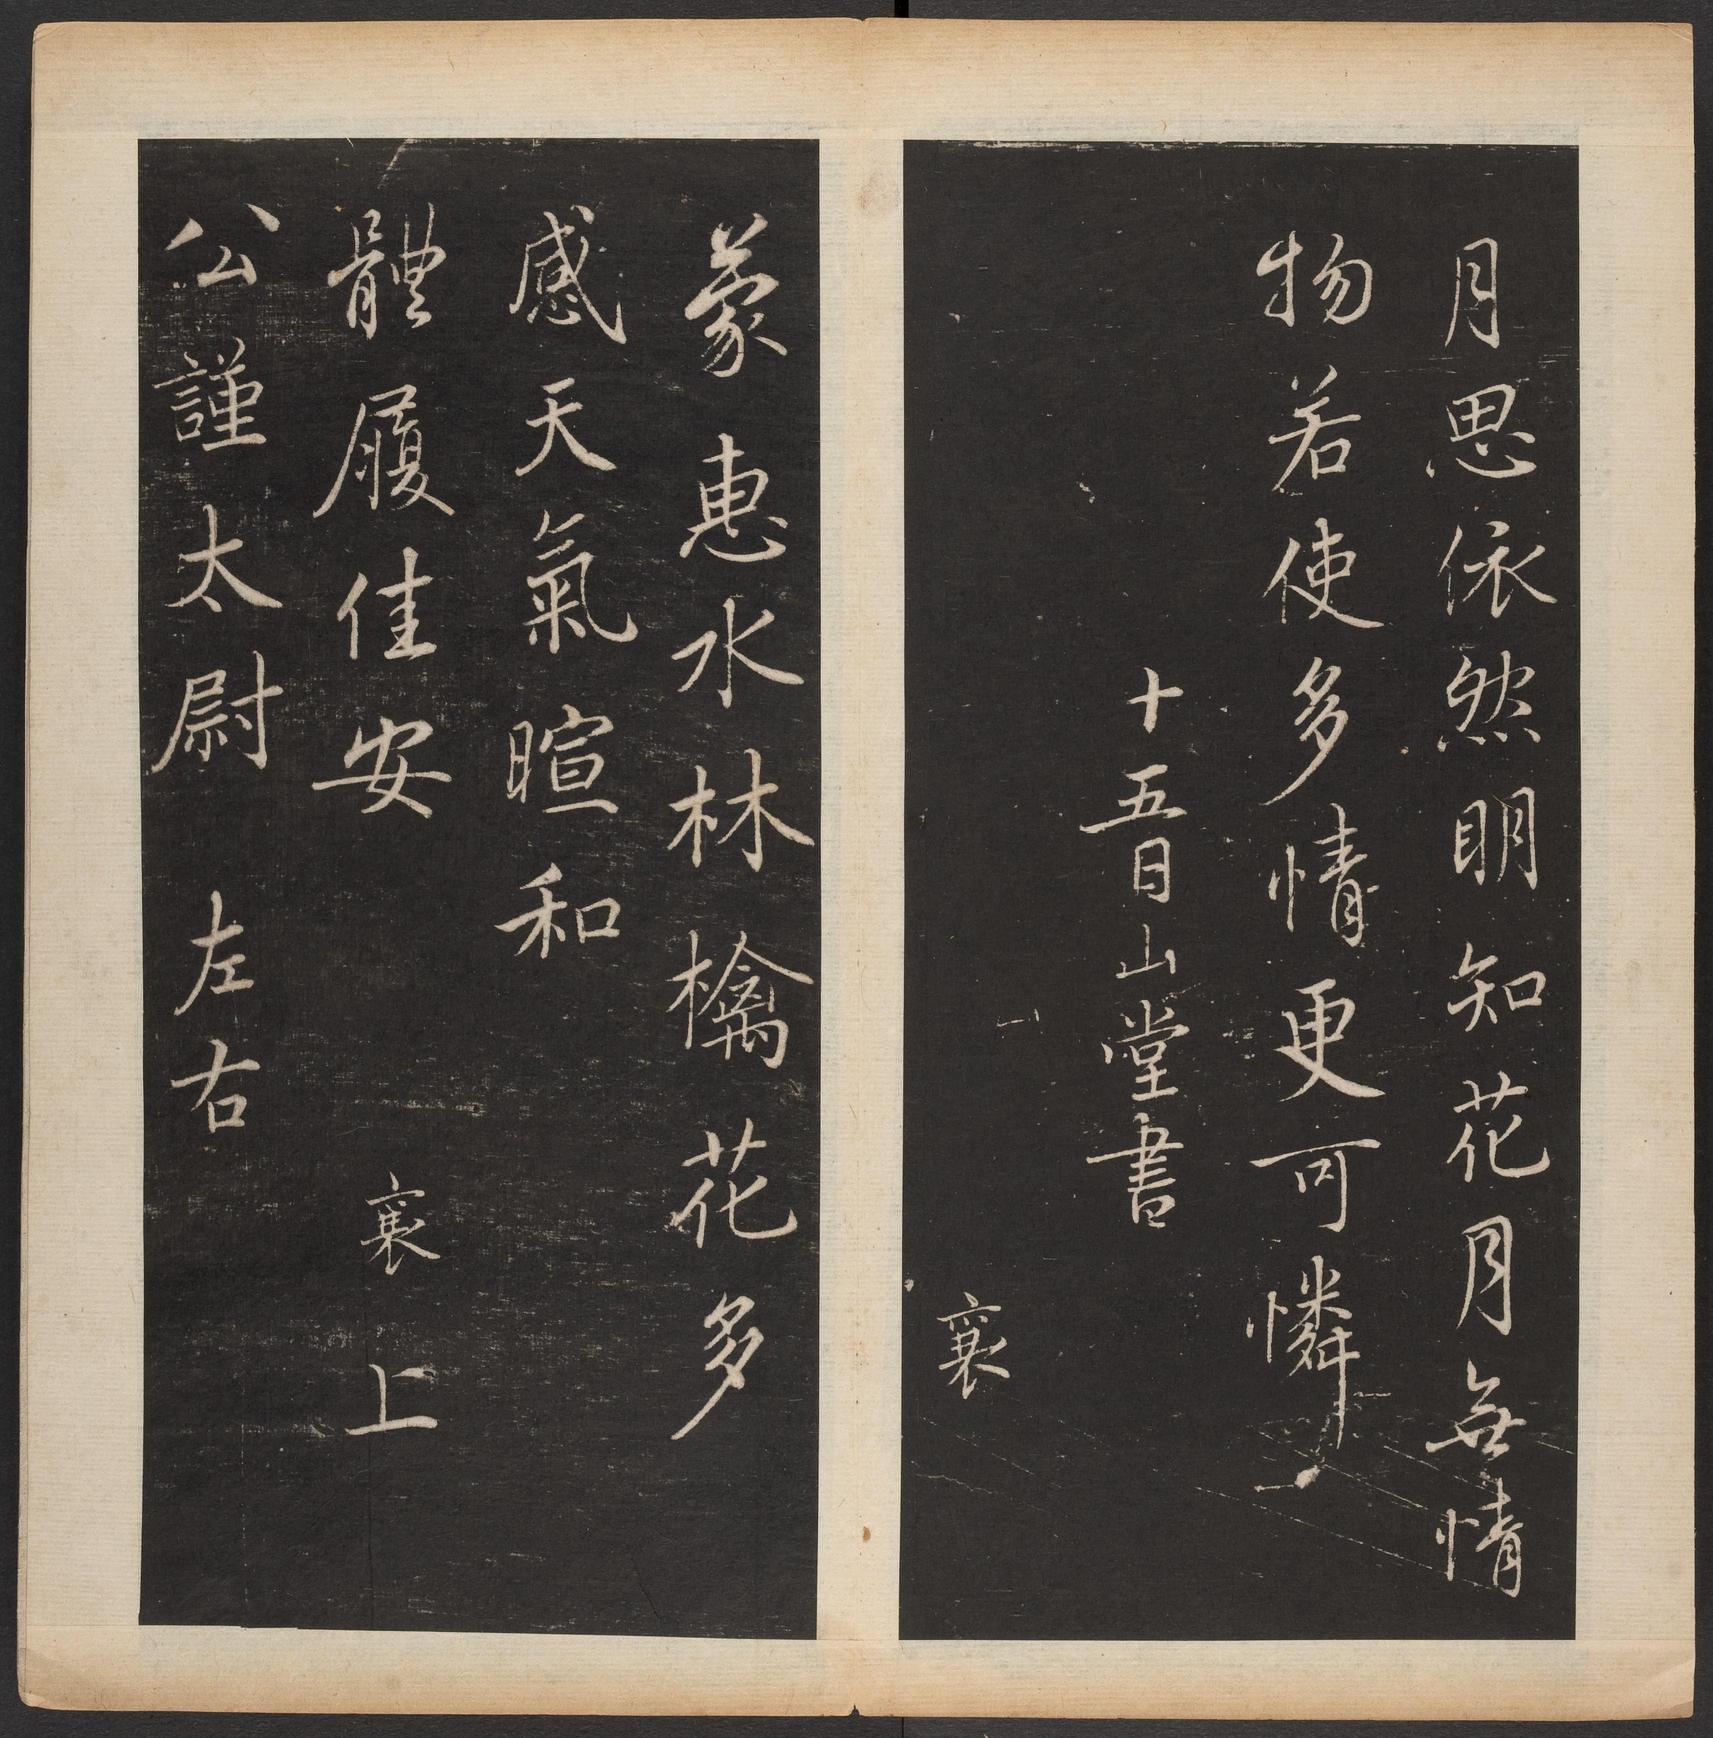 月思依然明知花月無情
物若使多情更可憐
十五日山堂書
襄
蒙惠水林檎花多
感天氣暄和
體履佳安 襄上
公謹太尉 左右